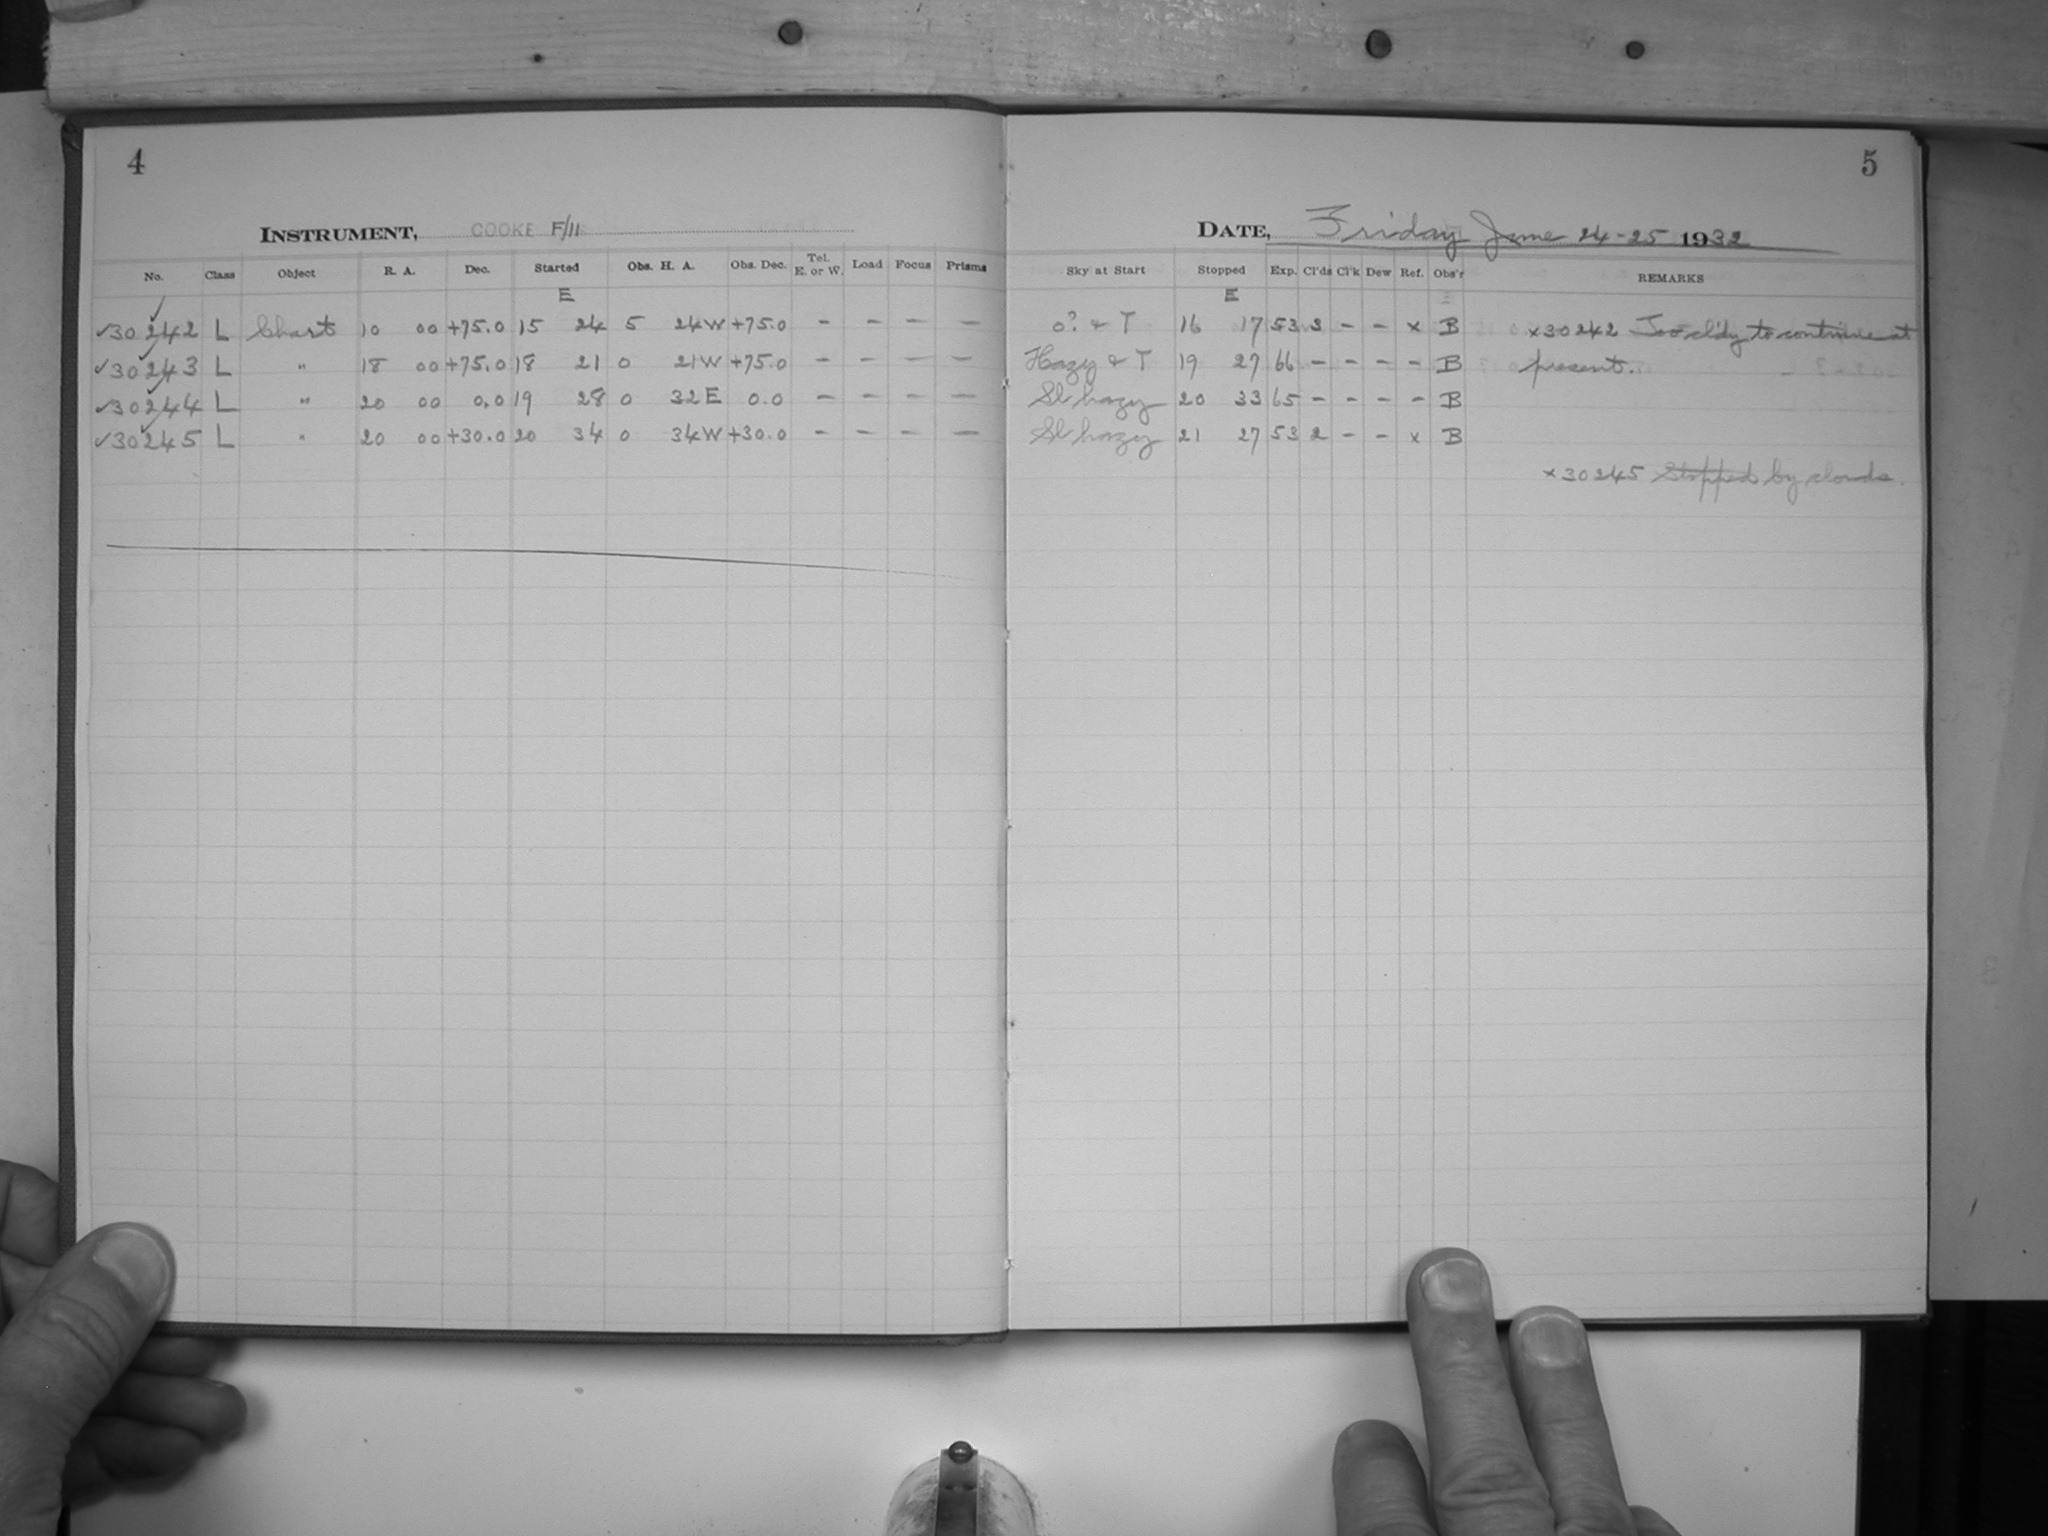 4
INSTRUMENT, COOKE F/11
No. Class Object R. A. Dec. Started Obs. H. A. Obs. Dec. Tel. E. or W. Load Focus Prisms
E
✓30242 L Chart 10 00 +75.0 15 24 5 24W +75.0 - - - -
✓30243 L " 18 00 +75.0 18 21 0 21W +75.0 - - - -
✓30244 L " 20 00 0.0 19 28 0 32E 0.0 - - - -
✓30245 L " 20 00 +30.0 20 34 0 34W +30.0 - - - -
5
DATE, Friday June 24-25 1932
Sky at Start Stopped Exp. Cl'ds Cl'k Dew Ref. Obs'r REMARKS
E
o? & T 16 17 53 3 - - x B x30242 Too cl'dy to continue at
Hazy & T 19 27 66 - - - - B present.
Sl hazy 20 33 65 - - - - B
Sl hazy 21 27 53 2 - - x B
x30245 Stopped by clouds.